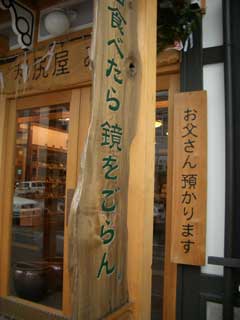 食べたら鏡をごらん
お父さん預かります